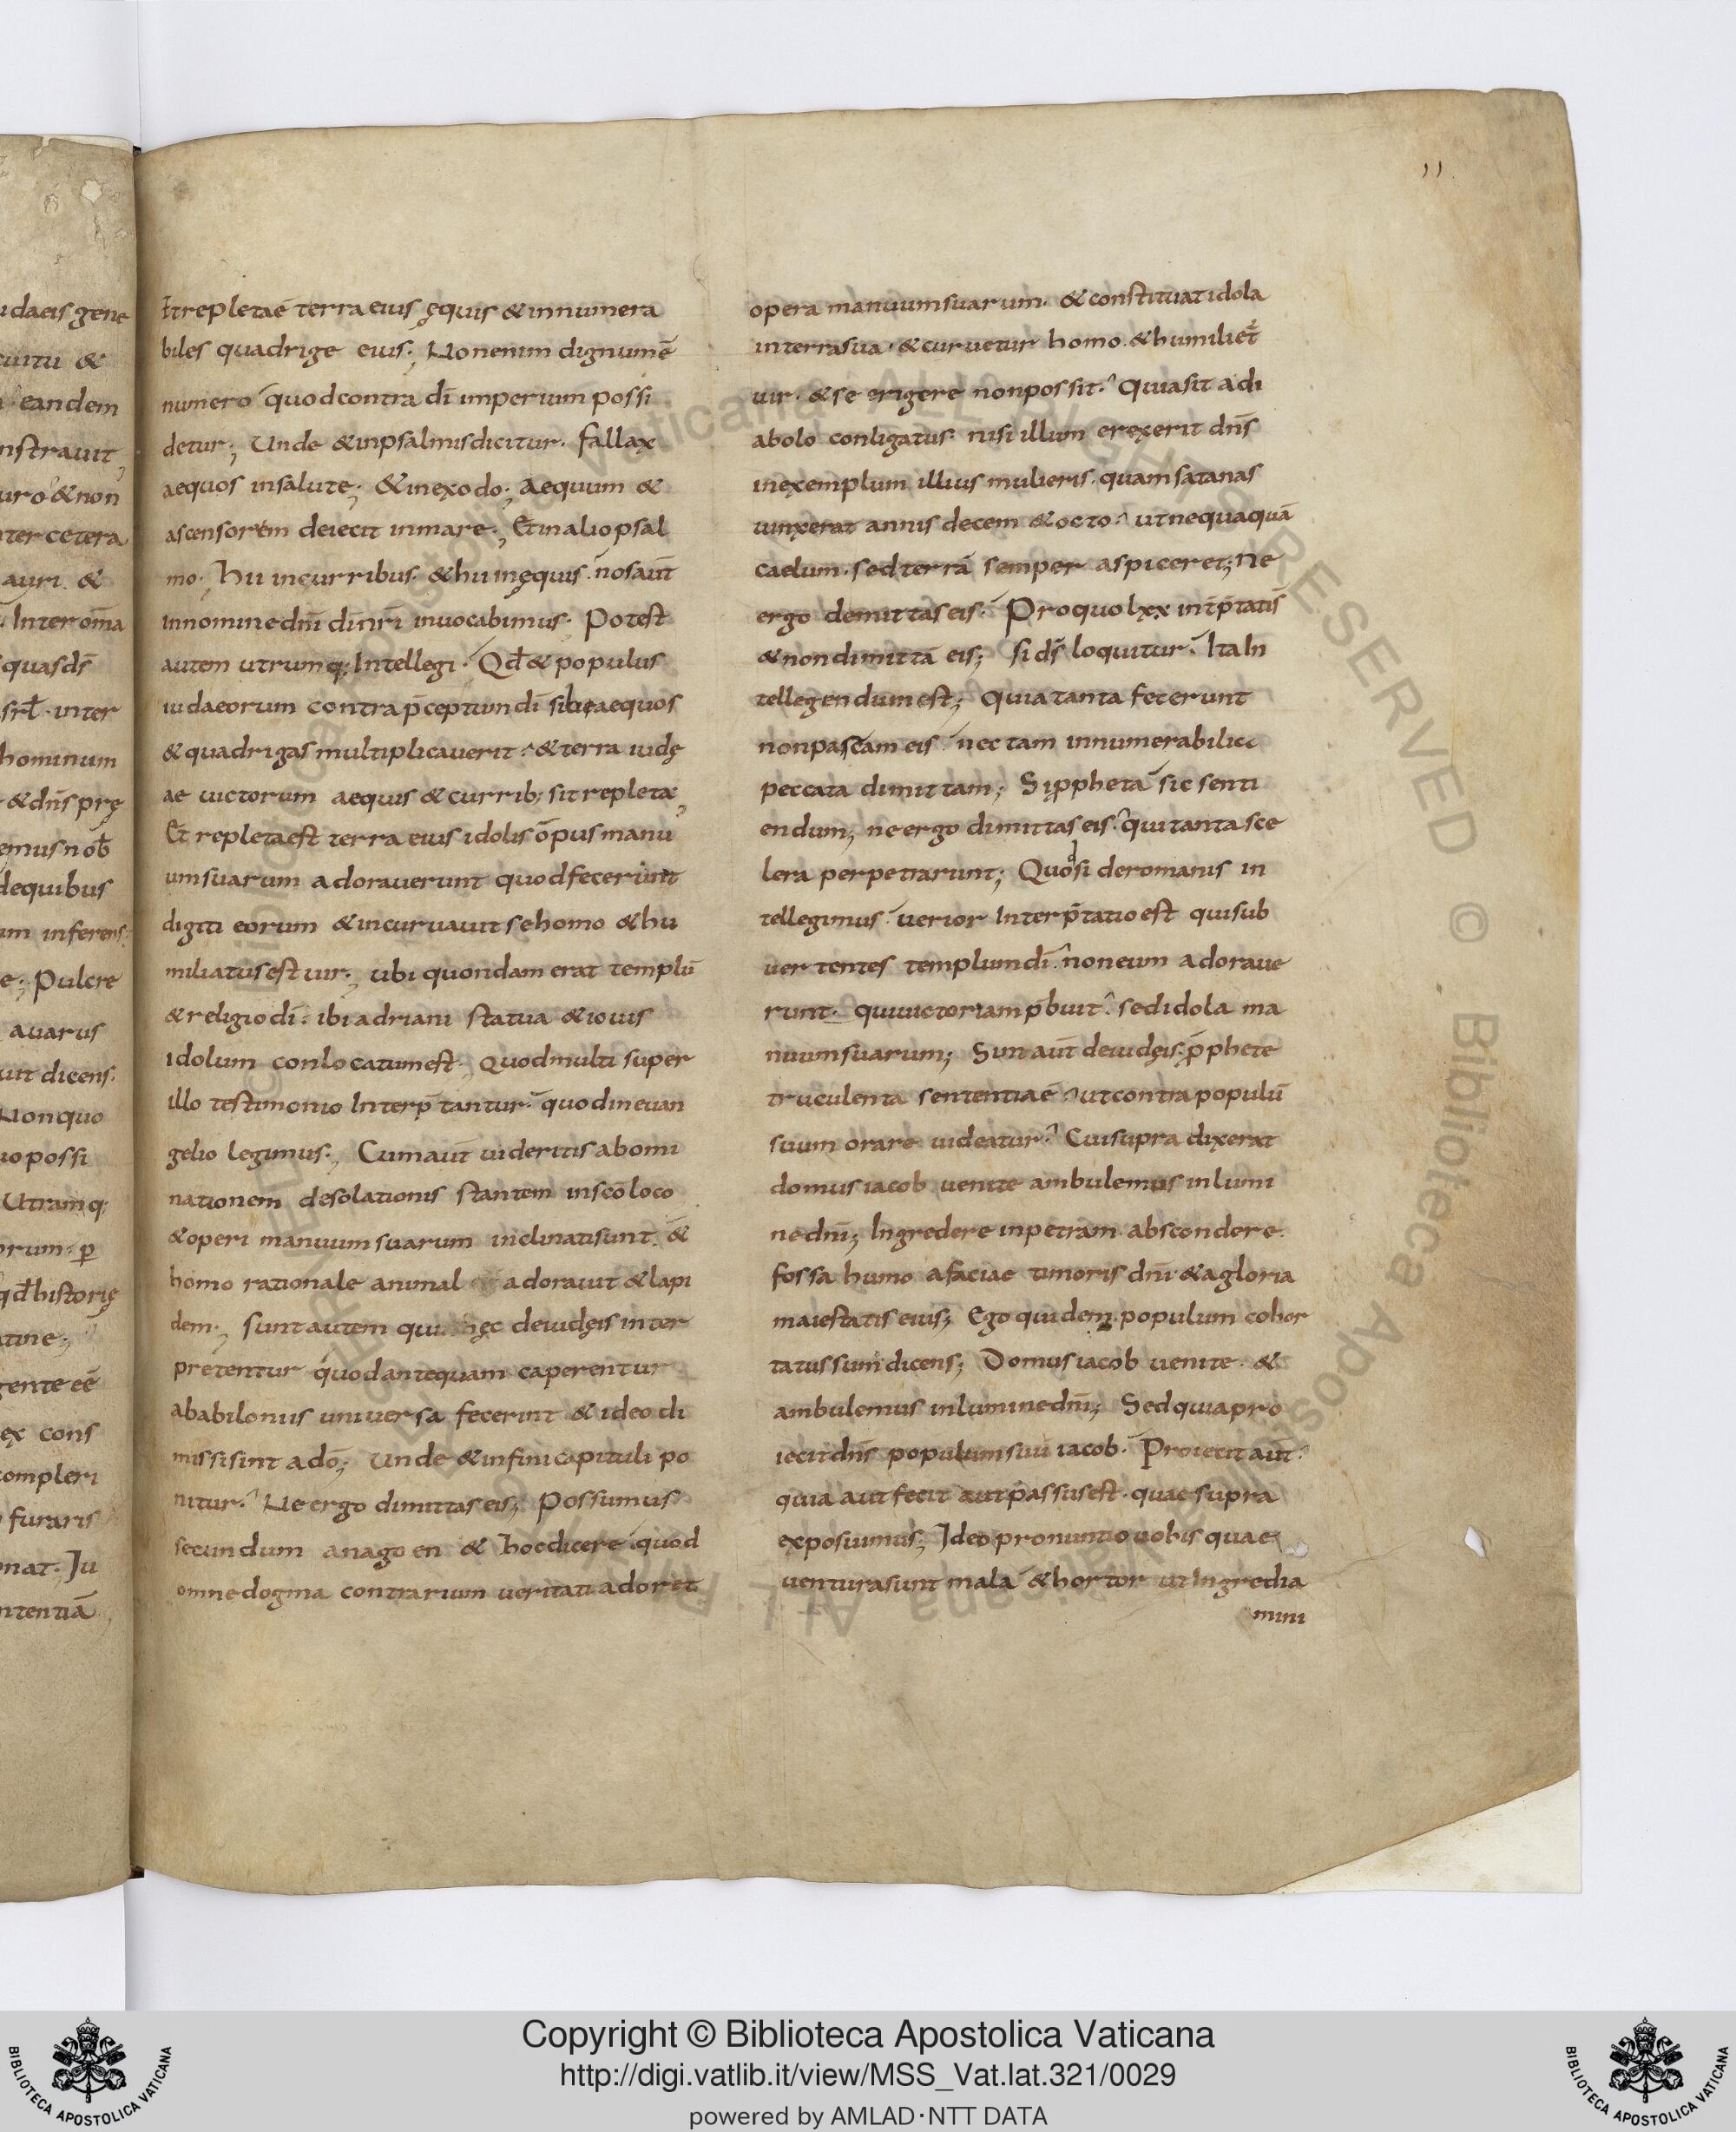 udaeis gene
cuitu &
eandem
nstrauit
uro & non
nter cetera
auri. &
Inter om̄a
quas ds̄
srl̄. inter
hominum
& dn̄s pre̜
emus nob̄
dequibus
um inferens
e; Pulcre
auarus
uit dicens.
Non quo
uo possi
Utramq;
orum. p̱
qd̄ historie̜
atine;
gente ee̅
ex cons
compleri
furaris
nat. Ju
ntentiā
Et repleta ē terra eius e̜quis & innumera
biles quadrige eius; Non enim dignum ē
numero quod contra dī imperium possi
detur; Unde & in psalmis dicitur. fallax
aequos in salute; & in exodo; Aequum &
ascensorem deiecit in mare; Et in alio psal
mo; Hii in curribus. & hii in e̜quis. nos aut̄
in nomine dn̄i dī nr̄i inuocabimus; Potest
autem utrumq; Intellegi. Qd̄ & populus
iudaeorum contra p̄ceptum dī sibi aequos
& quadrigas multiplicauerit. & terra iude̜
ae uictorum aequis & currib; sit repleta;
Et repleta est terra eius idolis opus manu
um suarum adorauerunt quod fecerunt
digiti eorum & incuruauit se homo & hu
miliatus est uir; ubi quondam erat templū
& religio dī. ibi adriani statua & iouis
idolum conlocatum est; Quod multi super
illo testimonio Interp̄tantur. quod in euan
gelio legimus; Cum aut̄ uideritis abomi
nationem desolationis stantem in sc̄o loco
& operi manuum suarum inclinati sunt. &
homo rationale animal adorauit & lapi
dem; sunt autem qui he̜c de iude̜is inter
pretentur quod antequam caperentur
a babiloniis uniuersa fecerint & ideo di
missi sint a do̅; Unde & in fini capituli po
nitur. Ne ergo dimittas eis; Possumus
secundum anagoen & hoc dicere quod
omne dogma contrarium ueritati adoret
11
opera manuum suarum. & constituat idola
in terra sua. & curuetur homo. & humiliet̄
uir. & se erigere non possit. Quia sit a di
abolo conligatus. nisi illum erexerit dn̄s
in exemplum illius mulieris. quam satanas
uinxerat annis decem & octo. ut nequaquā
caelum. sed terrā semper aspiceret; Ne
ergo demittas eis. Pro quo lxx int̄p̄tatis̄
& non dimittā eis; Si ds̄ loquitur. Ita In
tellegendum est; Quia tanta fecerunt
non pascam eis nec tam innumerabilia
peccata dimittam; Si p̱pheta sic senti
endum; ne ergo dimittas eis. qui tanta sce
lera perpetrarunt; Quodsi de romanis in
tellegimus uerior Interp̄tatio est qui sub
uertentes templum dī. non eum adoraue
runt. qui uictoriam p̄buit. sed idola ma
nuum suarum; Sin aut̄ de iude̜is. p̱phete
truculenta sententia ē. ut contra populū
suum orare uideatur. Cui supra dixerat
domus iacob uenite ambulemus in lumi
ne dn̄i; Ingredere in petram abscondere
fossa humo a faciae timoris dn̄i & a gloria
maiestatis eius; Ego quidem populum cohor
tatus sum dicens; Domus iacob uenite. &
ambulemus in lumine dn̄i; Sed quia pro
iecit dn̄s populum suū iacob. Proiecit aut̄
quia aut fecit aut p̱assus est. quae supra
exposiumus; Ideo pronuntio uobis quae
uentura sunt mala & hortor ut Ingredia
mini
Copyright © Biblioteca Apostolica Vaticana
http://digi.vatlib.it/view/MSS_Vat.lat.321/0029
powered by AMLAD·NTT DATA
BIBLIOTECA APOSTOLICA VATICANA
BIBLIOTECA APOSTOLICA VATICANA